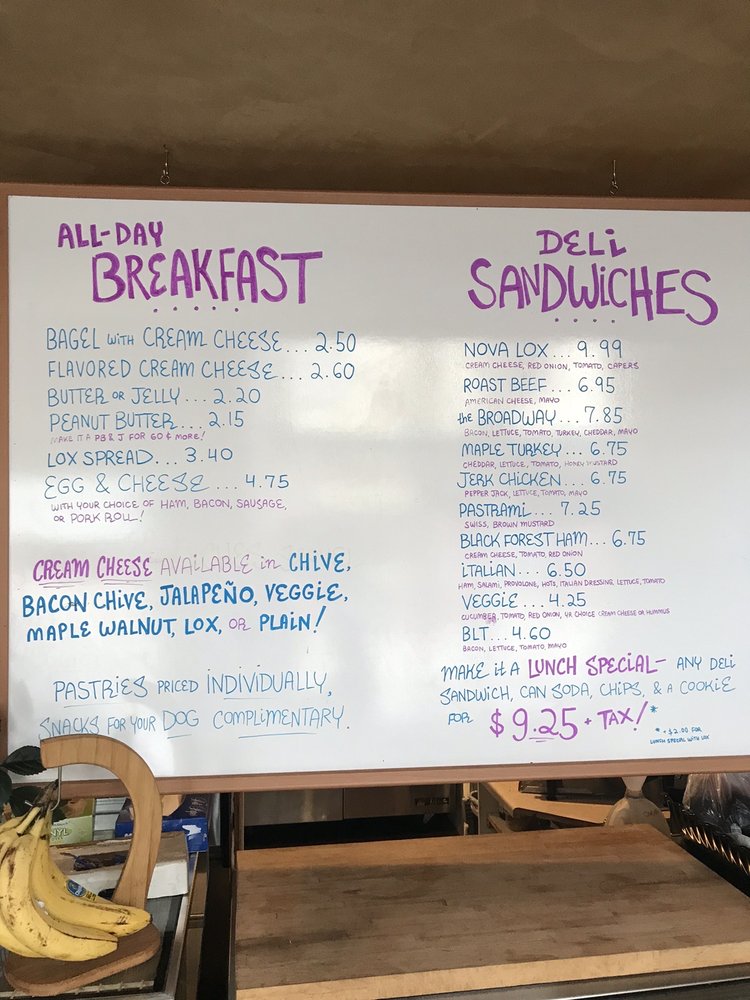 ALL-DAY
BREAKFAST
BAGEL WITH CREAM CHEESE... 2.50
FLAVORED CREAM CHEESE... 2.60
BUTTER OR JELLY... 2.20
PEANUT BUTTER... 2.15
MAKE IT A PB & J FOR 60¢ MORE!
LOX SPREAD... 3.40
EGG & CHEESE ... 4.75
WITH YOUR CHOICE OF HAM, BACON, SAUSAGE,
OR PORK ROLL!
CREAM CHEESE AVAILABLE in CHIVE,
BACON CHIVE, JALAPEÑO, VEGGIE,
MAPLE WALNUT, LOX, OR PLAIN!
PASTRIES PRICED INDIVIDUALLY,
SNACKS FOR YOUR DOG COMPLIMENTARY.
DELI
SANDWICHES
NOVA LOX... 9.99
CREAM CHEESE, RED ONION, TOMATO, CAPERS
ROAST BEEF... 6.95
AMERICAN CHEESE, MAYO
the BROADWAY... 7.85
BACON, LETTUCE, TOMATO, TURKEY, CHEDDAR, MAYO
MAPLE TURKEY... 6.75
CHEDDAR, LETTUCE, TOMATO, HONEY MUSTARD
JERK CHICKEN... 6.75
PEPPER JACK, LETTUCE, TOMATO, MAYO
PASTRAMI... 7.25
SWISS, BROWN MUSTARD
BLACK FOREST HAM... 6.75
CREAM CHEESE, TOMATO, RED ONION
ITALIAN... 6.50
HAM, SALAMI, PROVOLONE, HOTS, ITALIAN DRESSING, LETTUCE, TOMATO
VEGGIE... 4.25
CUCUMBER, TOMATO, RED ONION, YR CHOICE CREAM CHEESE OR HUMMUS
BLT... 4.60
BACON, LETTUCE, TOMATO, MAYO
MAKE IT A LUNCH SPECIAL- ANY DELI
SANDWICH, CAN SODA, CHIPS, & A COOKIE
FOR $9.25 + TAX!*
* +$2.00 FOR
LUNCH SPECIAL WITH LOX